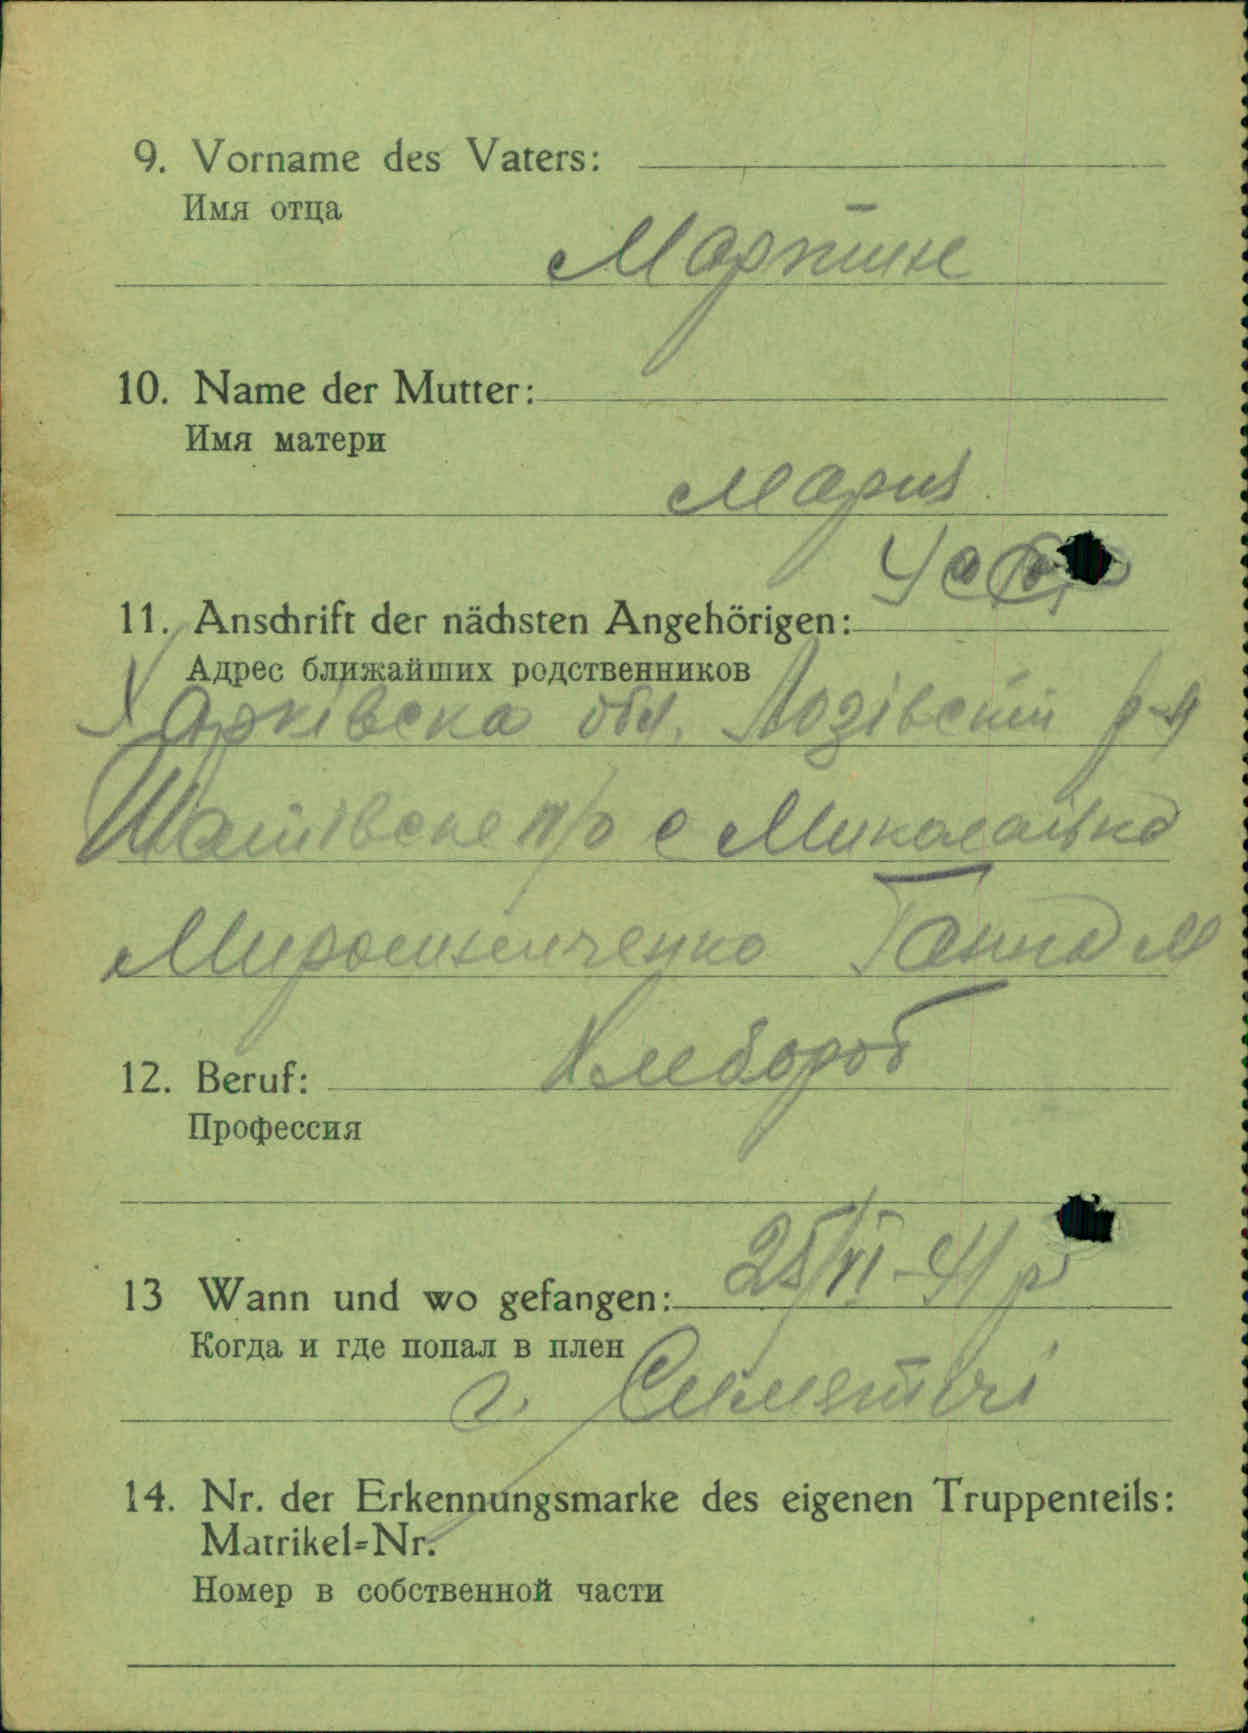 9. Vorname des Vaters:
Имя отца
Мартин
10. Name der Mutter:
Имя матери
Мария
11. Anschrift der nächsten Angehörigen:
Адрес ближайших родственников
Харківска обл. Лозівский р-н
п/о с
Мирошниченко Ганна М
Хлебороб
12. Beruf:
Профессия
25/VI-41 р
13 Wann und wo gefangen:
Когда и где попал в плен
г. Семятичі
14. Nr. der Erkennungsmarke des eigenen Truppenteils:
Matrikel=Nr.
Номер в собственной части